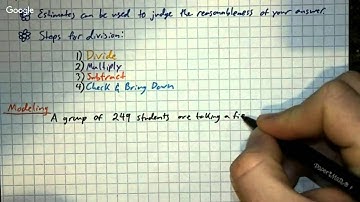 Google
Estimates can be used to judge the reasonableness of your answer
Steps for division:
1) Divide
2) Multiply
3) Subtract
4) Check & Bring Down
Modeling
A group of 249 students are taking a fie